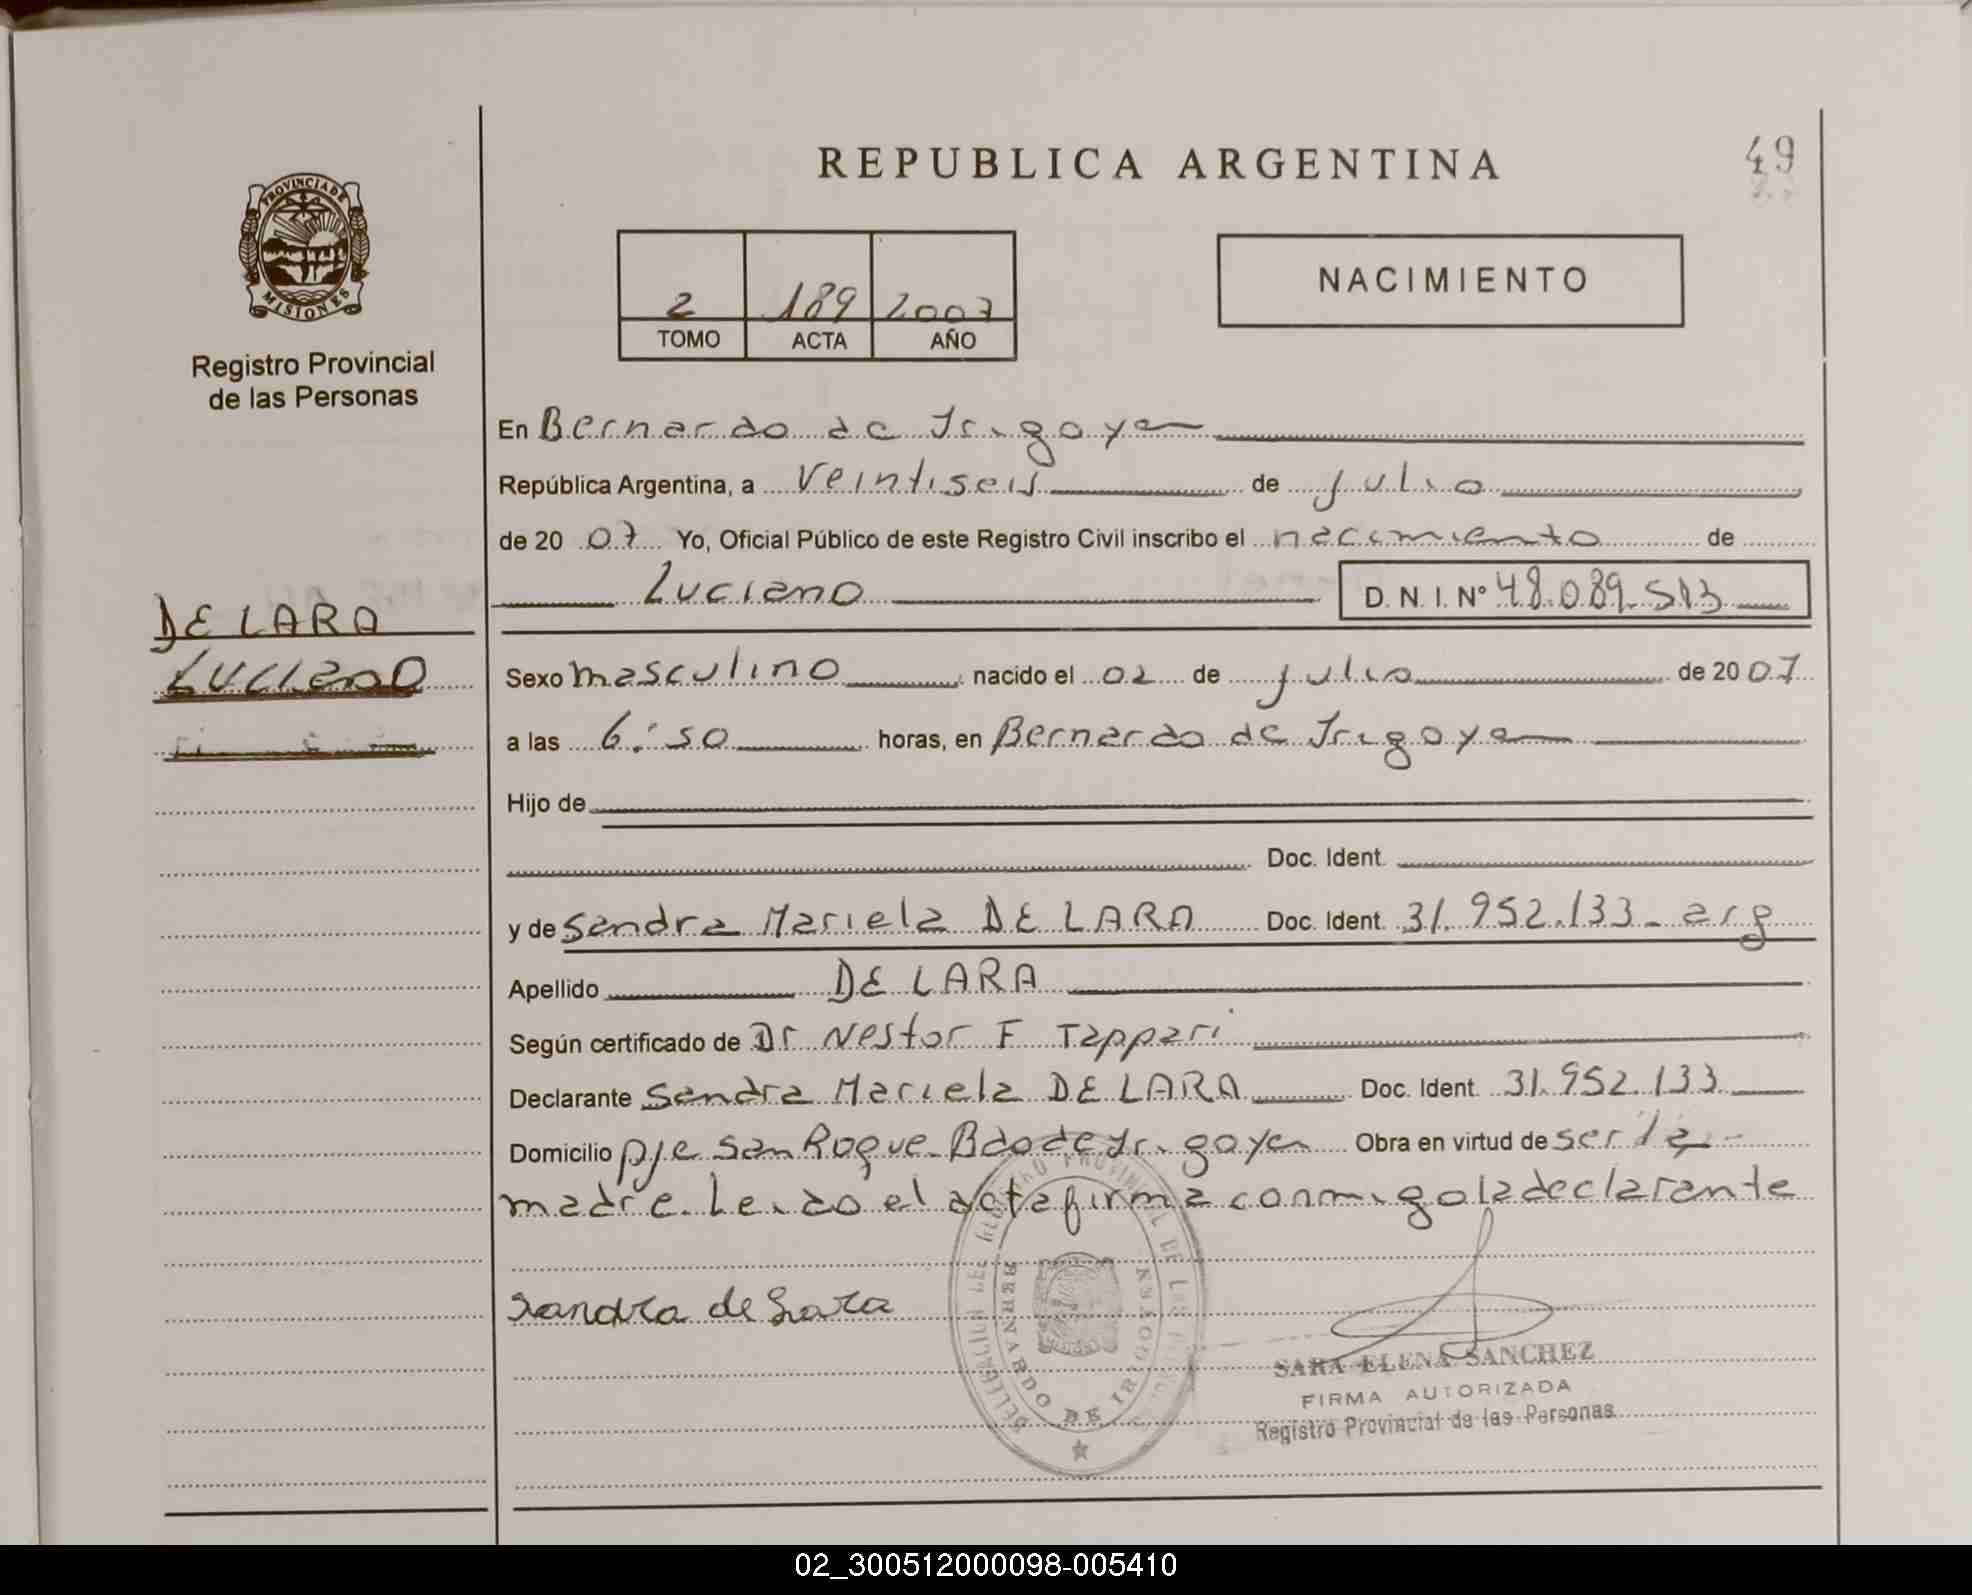 REPUBLICA ARGENTINA
49
PROVINCIA DE
MISIONES
Registro Provincial
de las Personas
2 189 2007
TOMO ACTA AÑO
NACIMIENTO
En Bernardo de Irigoyen
República Argentina, a veintiseis de julio
de 20 07 Yo, Oficial Público de este Registro Civil inscribo el nacimiento de
Luciano D. N. I. Nº 48.089.513
DE LARA
Luciano
Sexo masculino nacido el 02 de julio de 2007
a las 6:50 horas, en Bernardo de Irigoyen
Hijo de
Doc. Ident.
y de Sandra Mariela DE LARA Doc. Ident. 31.952.133 - arg
Apellido DE LARA
Según certificado de Dr Nestor F Tappari
Declarante Sandra Mariela DE LARA Doc. Ident. 31.952.133
Domicilio pje San Roque Bdo de Irigoyen Obra en virtud de ser la
madre. Leido el acta firma conmigo la declarante
Sandra de Lara
REGISTRO PROVINCIAL DE LAS
BERNARDO DE IRIGOYEN
SARA ELENA SANCHEZ
FIRMA AUTORIZADA
Registro Provincial de las Personas
02_300512000098-005410